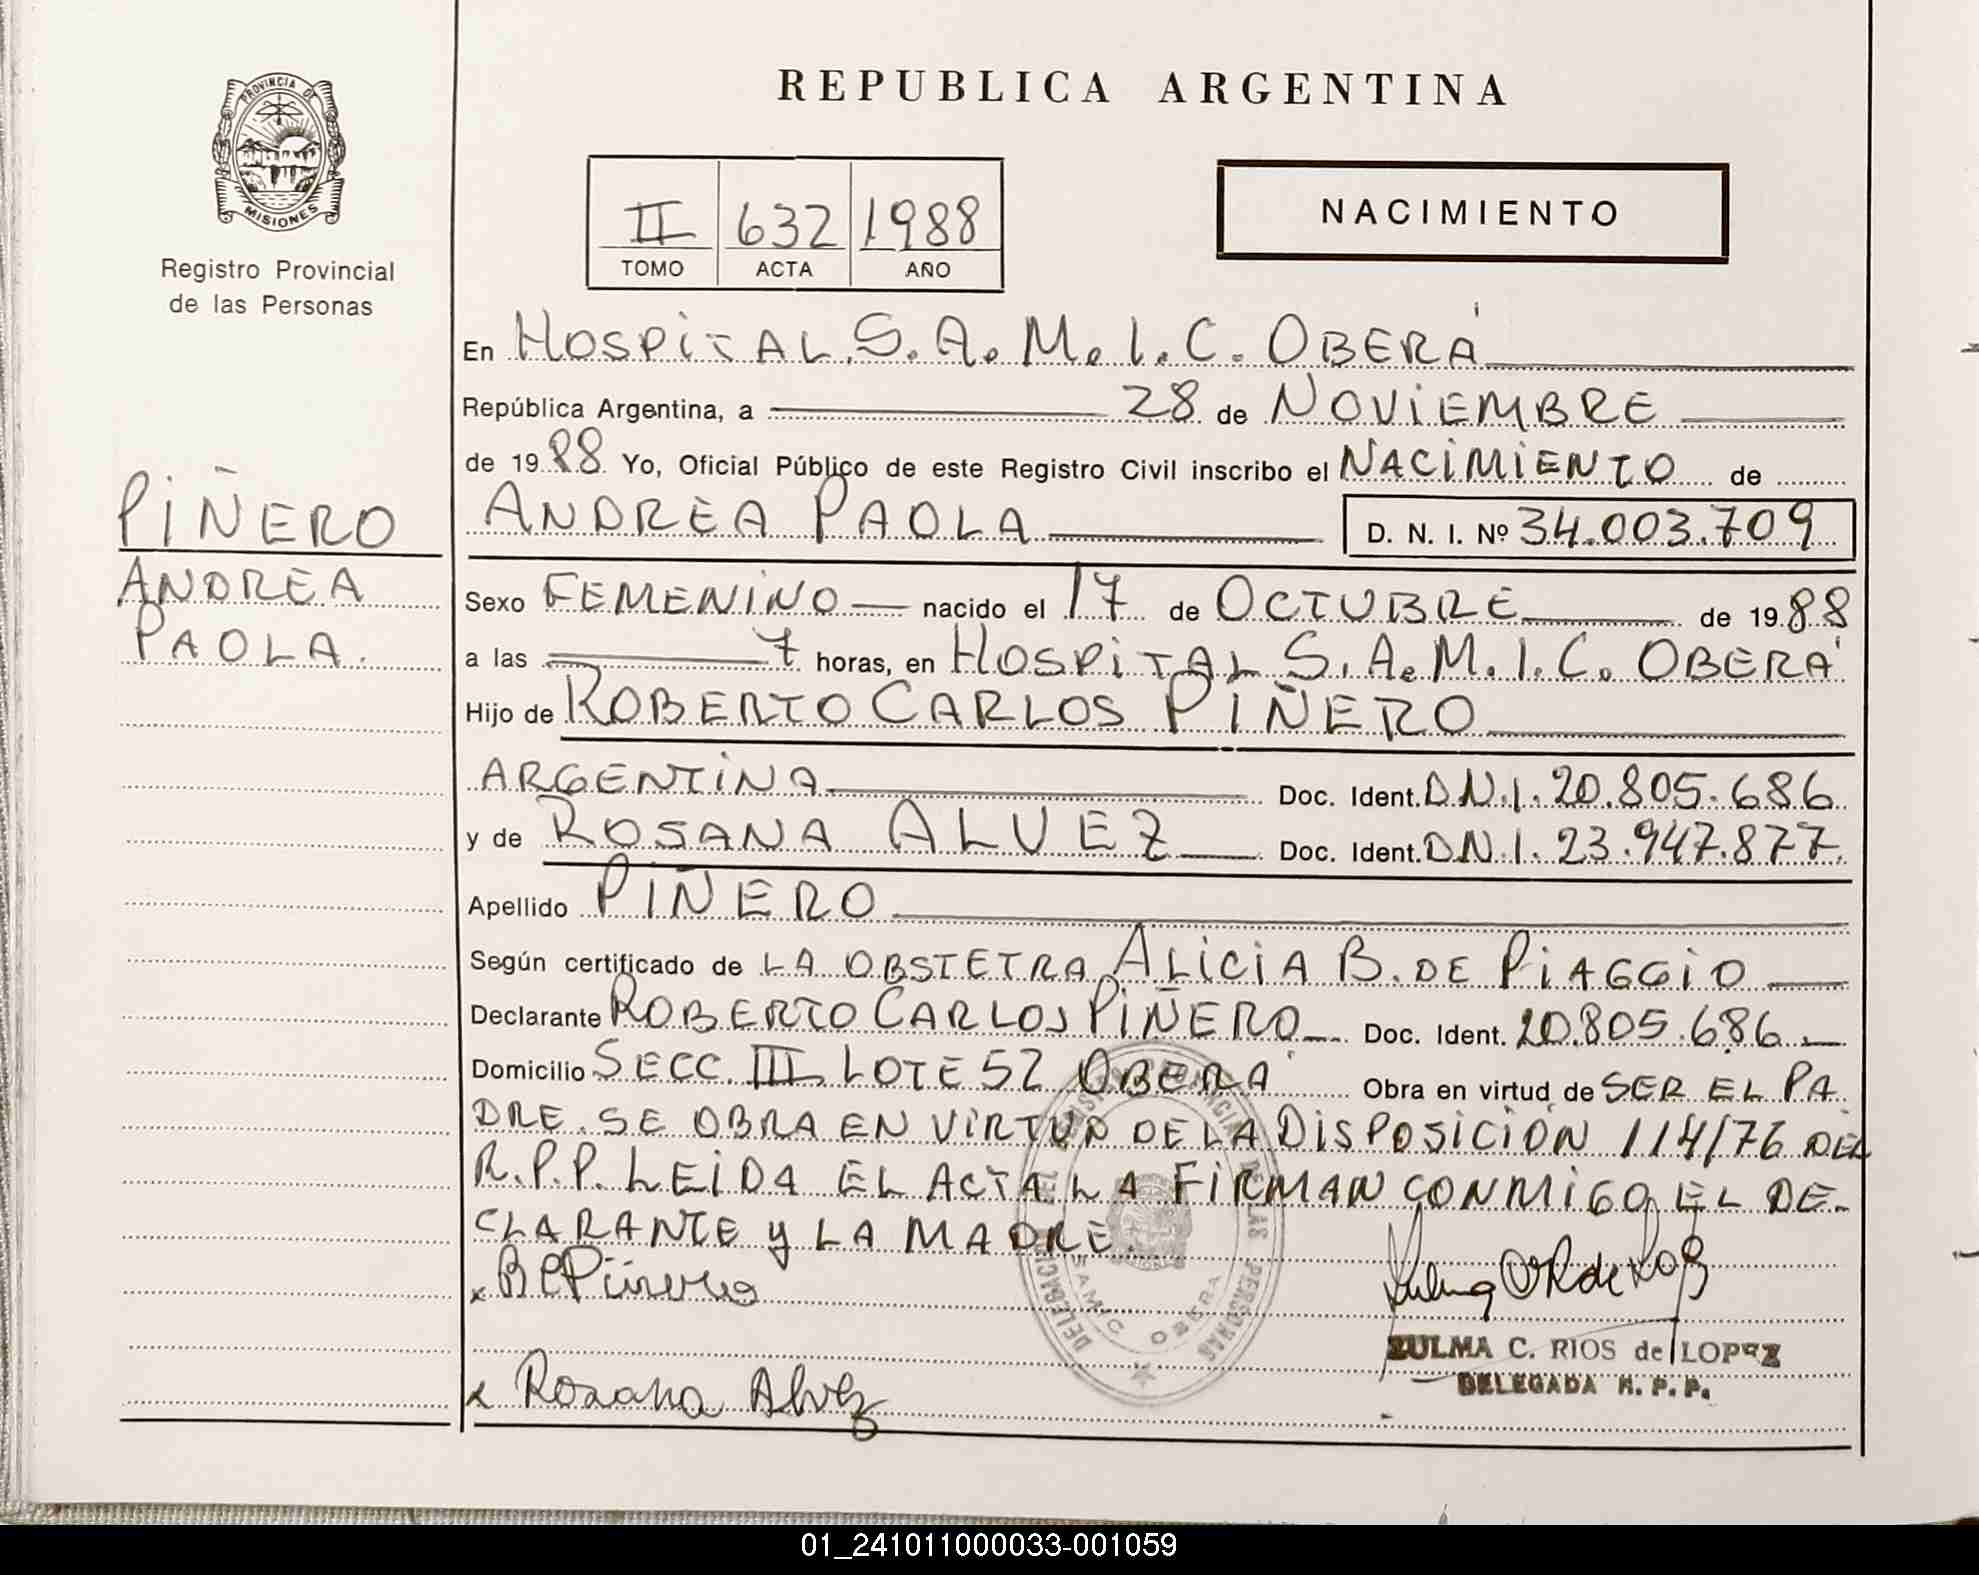 PROVINCIA DE
MISIONES
Registro Provincial
de las Personas
PIÑERO
ANDREA
PAOLA.
REPUBLICA ARGENTINA
II 632 1988
TOMO ACTA AÑO
NACIMIENTO
En HOSPITAL S.A.M.I.C. OBERÁ
República Argentina, a 28 de NOVIEMBRE
de 1988 Yo, Oficial Público de este Registro Civil inscribo el NACIMIENTO de
ANDREA PAOLA D. N. I. Nº 34.003.709
Sexo FEMENINO nacido el 17 de OCTUBRE de 1988
a las 7 horas, en HOSPITAL S.A.M.I.C. OBERÁ
Hijo de ROBERTO CARLOS PIÑERO
ARGENTINA Doc. Ident. D.N.I. 20.805.686
y de ROSANA ALVEZ Doc. Ident. D.N.I. 23.947.877.
Apellido PIÑERO
Según certificado de LA OBSTETRA ALICIA B. DE PIAGGIO
Declarante ROBERTO CARLOS PIÑERO Doc. Ident. 20.805.686
Domicilio SECC. III LOTE 52 OBERÁ Obra en virtud de SER EL PA
DRE. SE OBRA EN VIRTUD DE LA DISPOSICIÓN 114/76 DEL
R.P.P. LEIDA EL ACTA LA FIRMAN CONMIGO EL DE-
CLARANTE Y LA MADRE.
x RC Piñero
x Rosana Alvez
DELEGACION
DE LAS PERSONAS
SAMIC OBERA
ZULMA C. RIOS de LOPEZ
DELEGADA R. P. P.
01_241011000033-001059